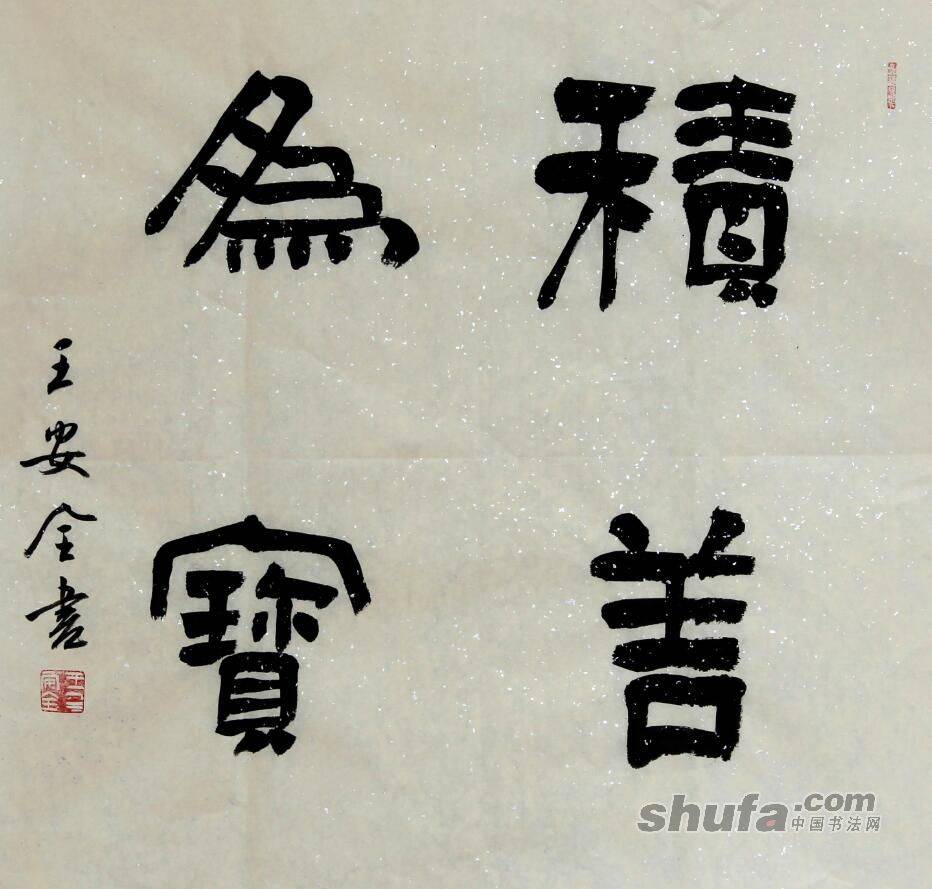 積善
為寶
王安全書
shufa.com
中国书法网